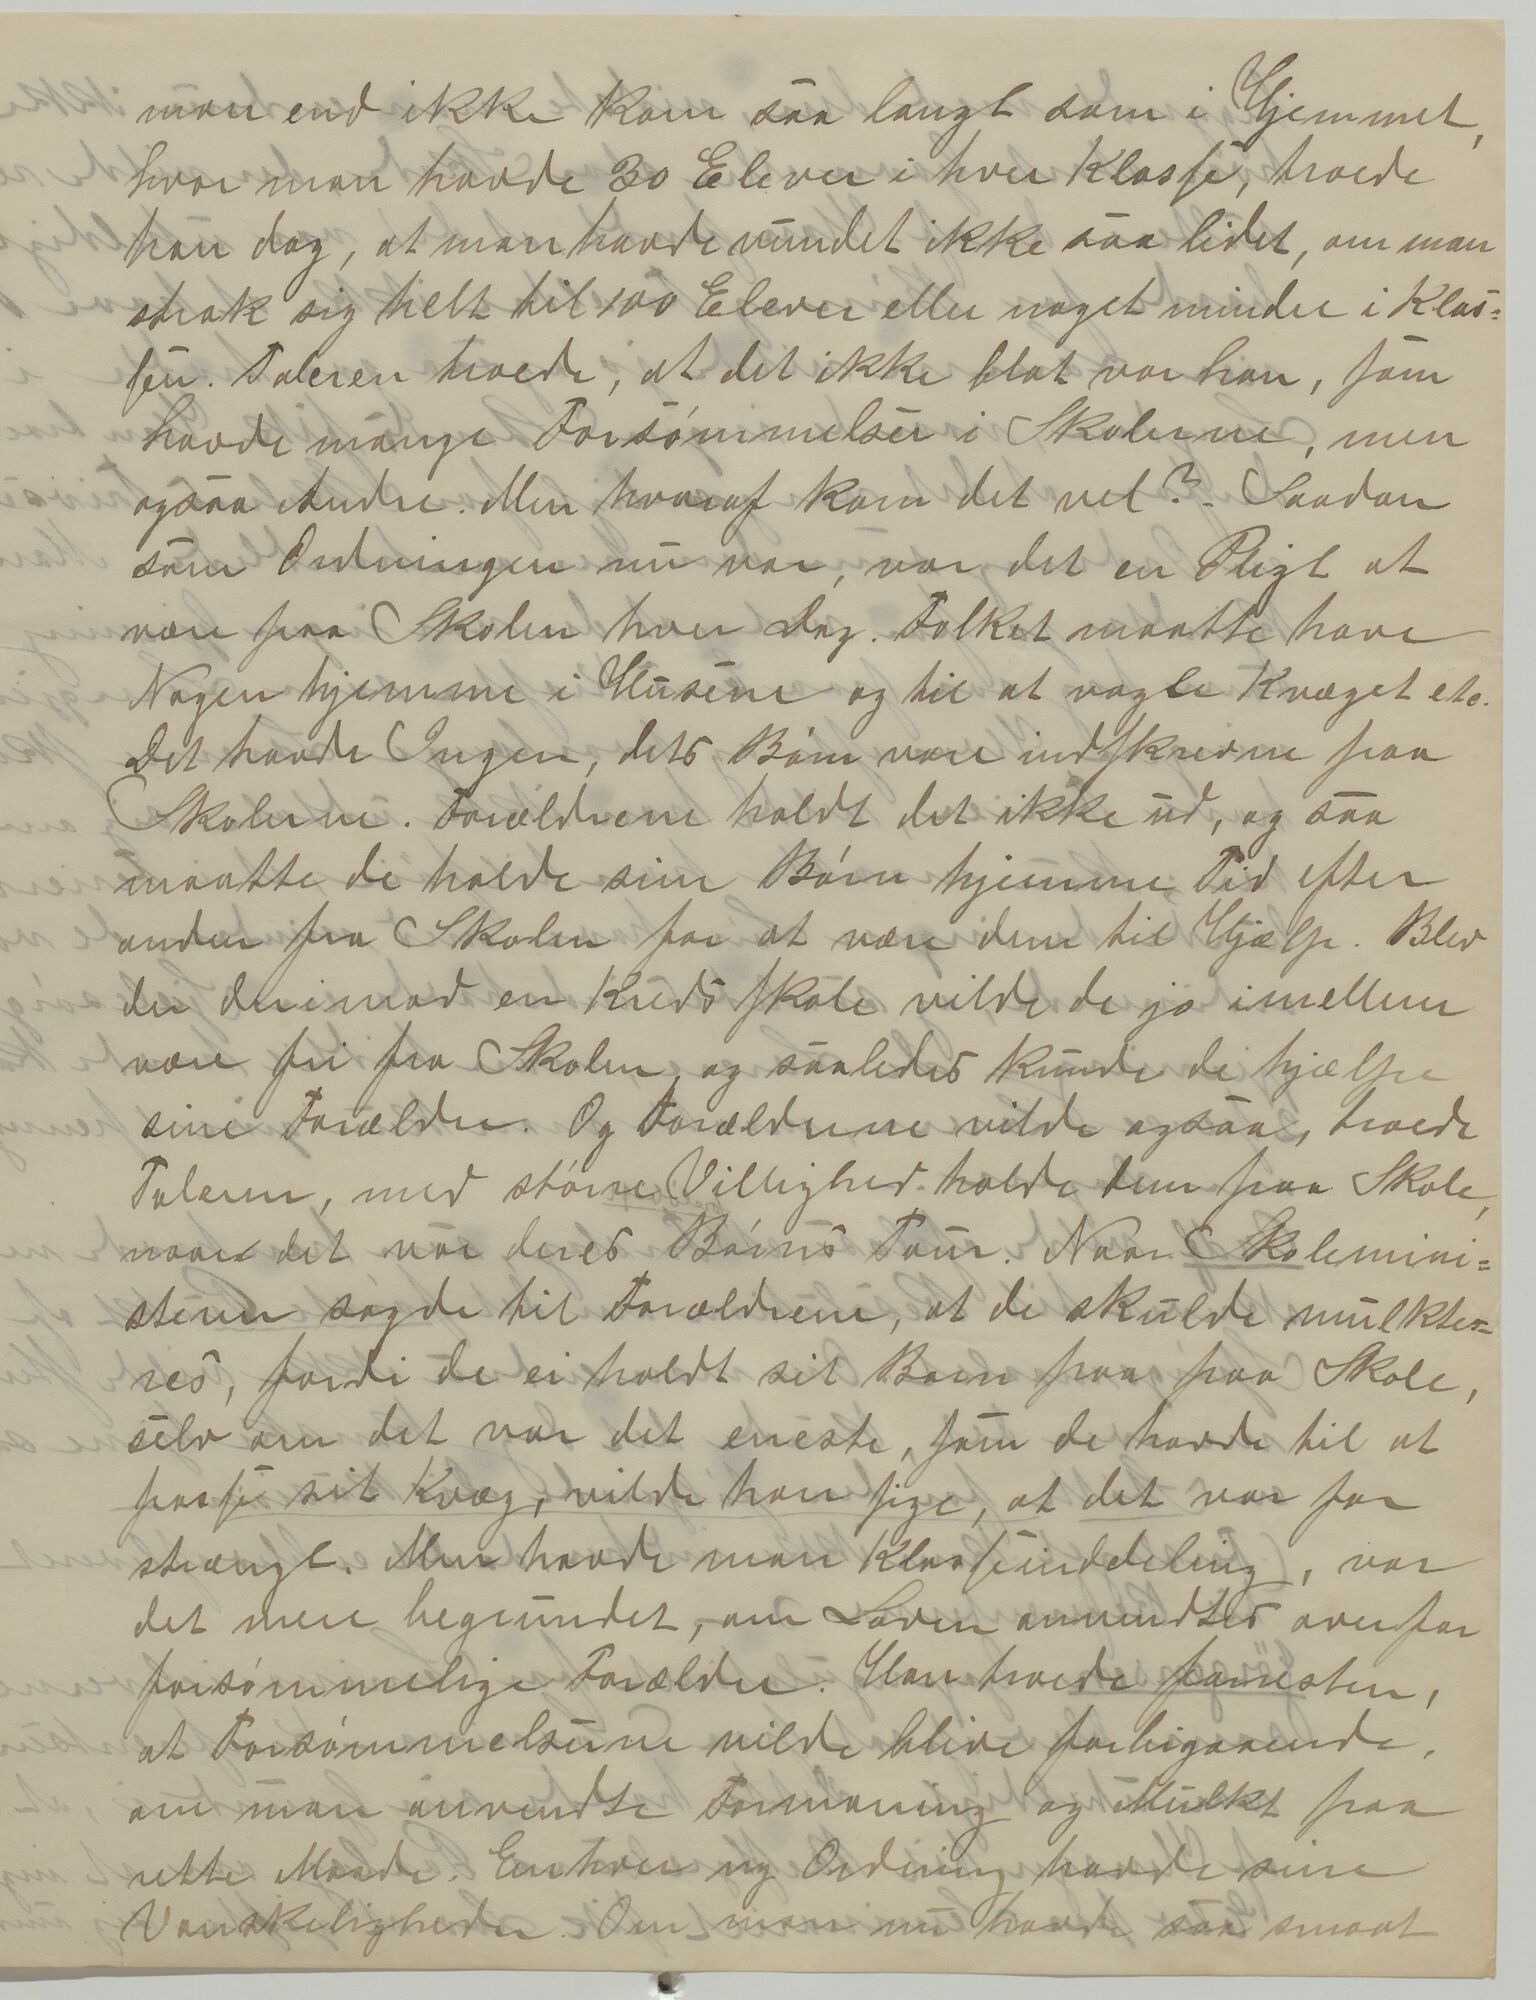 man end ikke kom saa langt som i Hjemmet,
hvor man havde 30 Elever i hver Klasse, troede
han dog, at man havde vundet ikke saa lidet, om man
strak sig helt til 100 Elever eller noget mindre i Klas=
sen. Taleren troede, at det ikke blot var han, som
havde mange Forsømmelser i Skolerne, men
ogsaa Andre. Men hvoraf kom det vel? - Saadan
som Ordningen nu var, var det en Pligt at
være paa Skolen hver Dag. Folket maatte have
Nogen hjemme i Husene og til at vogte Kvæget etc.
Det havde Ingen, dets Børn vare indskrevne paa
Skolerne. Forældrene holdt det ikke ud, og saa
maatte de holde sine Børn hjemme Tid efter
anden fra Skolen for at være dem til Hjælp. Blev
der derimod en Kreds skole vilde de jo imellem
være fri fra Skolen, og saaledes kunde de hjælpe
sine Forældre. Og Forældrene vilde ogsaa, troede
Taleren, med større Villighed holde dem paa Skole,
naar det var deres Børns Tour. Naar Skolemini=
steren sagde til Forældrene, at de skulde mulkte=
res, fordi de ei holdt sit Barn paa paa Skole,
selv om det var det eneste, som de havde til at
passe sit Kvæg, vilde han sige, at det var for
strængt. Men havde man Klasseinddeling, var
det mere begrundet, om Loven anvendtes overfor
forsømmelige Forældre. Han troede forresten,
at Forsømmelserne vilde blive forbigaaende,
om man anvendte Formaning og Mulkt paa
rette Maade. Enhver ny Ordning havde sine
Vanskeligheder. Om man nu havde saa smaat